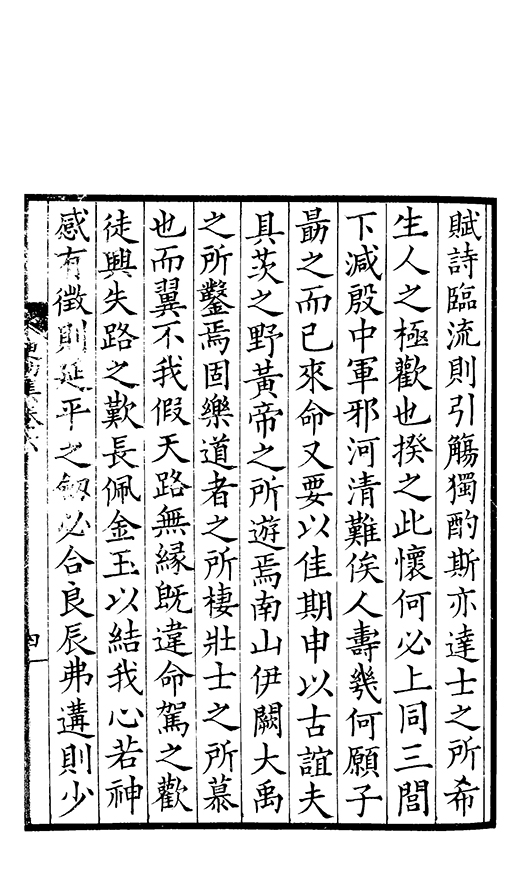 賦詩臨流則引觴獨酌斯亦達士之所希
生人之極歡也揆之此懷何必上同三閭
下減殷中軍邪河清難俟人壽幾何願子
勗之而已來命又要以佳期申以古誼夫
具茨之野黃帝之所遊焉南山伊闕大禹
之所鑿焉固樂道者之所棲壯士之所慕
也而翼不我假天路無緣旣違命駕之歡
徒興失路之歎長佩金玉以結我心若神
感有徵則延平之劒必合良辰弗遘則少